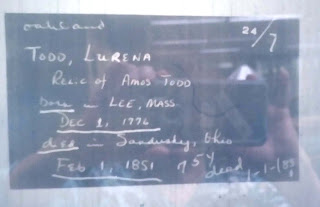 oakland
24/7
TODD, LURENA
Relic of Amos TODD
Born in LEE, MASS.
DEC 2, 1776
died in Sandusky, Ohio
FEB 1, 1851 75 y
dead